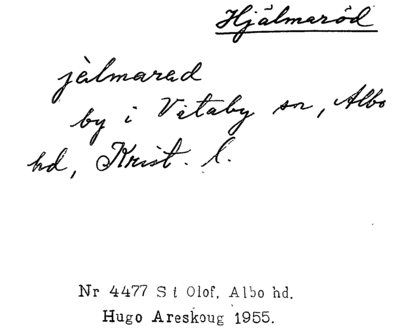 Hjälmaröd
jàlmarad
by i Vitaby sn, Albo
hd, Krist. l.
Nr 4477 St Olof, Albo hd.
Hugo Areskoug 1955.